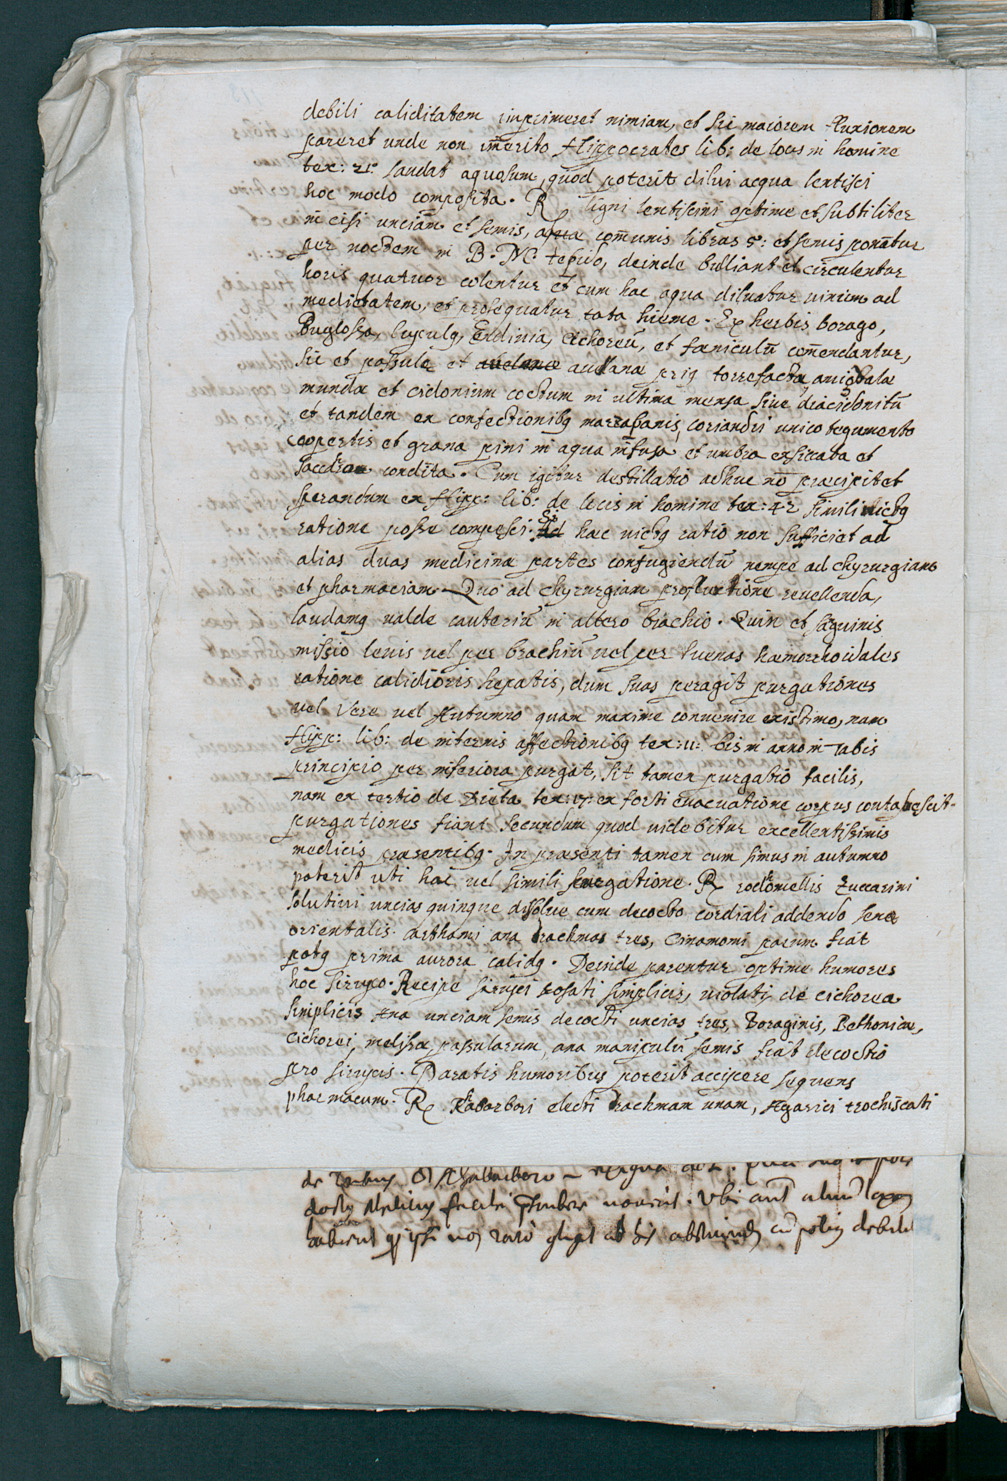 debili caliditatem imprimeret nimiam, et sic maiorem fluxionem
pareret unde non im̃erito Hippocrates lib: de locis in homine
tex: 21. laudat aquosum, quod poterit dilui acqua lentisci
hoc modo composita. ℞ ligni lentiscini optime et subtiliter
incisi unciam et semis, aquæ com̃unis libras 5: et semis ponãtur
per noctem in B. M. tepido, deinde bulliant et circulentur
horis quatuor colentur et cum hac aqua diluatur uinum ad
medietatem, et prosequatur tota hieme. Ex herbis borago,
Buglossa, lupulq, Endiuia, cichoreũ, et fæniculũ com̃endantur,
sic et passulæ et auellana priq torrefacta, amigdala
munda et cidonium coctum in ultima mensa siue diacidonitũ
et tandem ex confectionibq marzapanis, coriandri unico tegumento
coopertis et grana pini in aqua infusa et umbra exsiccata et
condita. Cum igitur destillatio adhuc nõ præcipitet
sperandum ex Hipp: lib: de locis in homine tex: 42 simili uictq
ratione posse compesci. Si hæc uictq ratio non sufficiet ad
alias duas medicinæ partes confugiendũ nempe ad chyrurgiam
et pharmaciam. Quo ad chyrurgiam pro fluxione reuellenda,
laudamq ualde cauteriũ in altero brachio. Quin et sãguinis
missio leuis uel per brachiũ uel per uenas hæmorrhoidales
ratione calidioris hepatis, dum suas peragit purgationes
uel Vere uel Autumno quam maxime conuenire existimo, nam
Hipp: lib: de internis affectionibq tex: 11. bis in anno in tabis
principio per inferiora purgat, sit tamen purgatio facilis,
nam ex tertio de Dieta tex: 17. ex forti euacuatione corpus contabescit
purgationes fiant secundum quod uidebitur excellentissimis
medicis præsentibq. In præsenti tamen cum simus in autumno
poterit uti hac uel simili purgatione. ℞ rodomellis zuccarini
solutiui uncias quinque dissolue cum decocto cordiali addendo senæ
orientalis. carthami ana drachmas tres, cinamomi parum fiat
potq prima aurora calidq. Deinde parentur optime humores
hoc sirupo. Recipe sirupi rosati simplicis, uiolati, de cichorea
simplicis ana unciam semis decocti uncias tres, Boraginis, Bethonicæ,
cichorei, melissæ passularum, ana manipulũ semis fiat decoctio
pro sirupis. Paratis humoribus poterit accipere sequens
pharmacum. ℞ Rabarbari electi drachmam unam, Agarici trochiscati